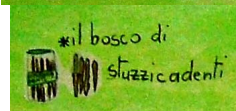 *il bosco di
stuzzicadenti